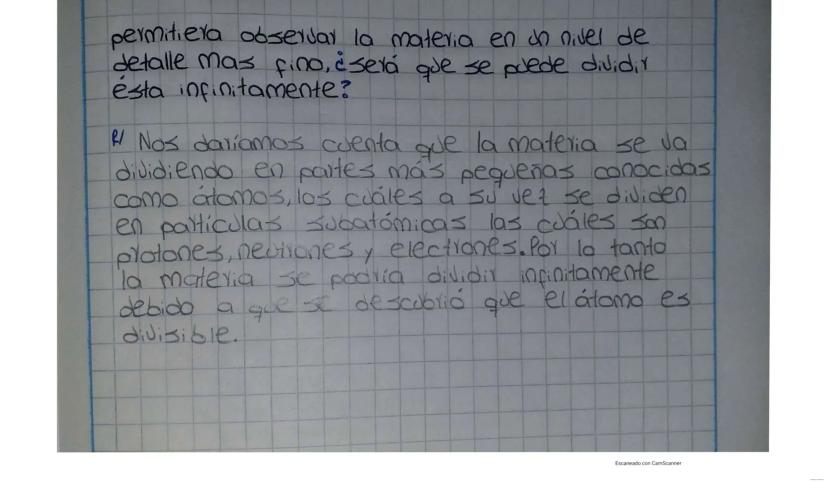 permitiera observar la materia en un nivel de
detalle mas fino, ¿será que se puede dividir
ésta infinitamente?
R/ Nos daríamos cuenta que la materia se va
dividiendo en partes más pequeñas conocidas
como átomos, los cuáles a su vez se dividen
en partículas subatómicas las cuáles son
protones, neutrones y electrones. Por lo tanto
la materia se podría dividir infinitamente
debido a que se descubrió que el átomo es
divisible.
Escaneado con CamScanner